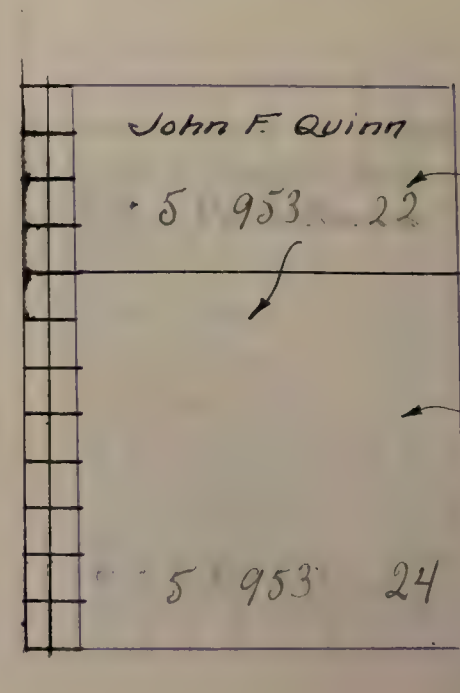 John F. Quinn
5 953 22
5 953 24